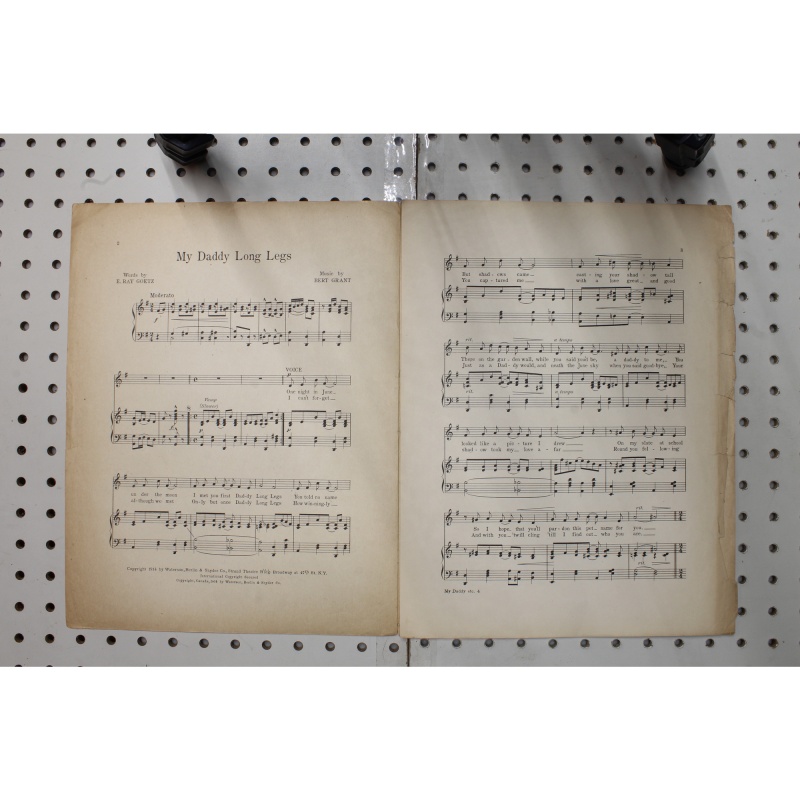 2
My Daddy Long Legs
Words by
E. RAY GOETZ
Music by
BERT GRANT
Moderato
VOICE
One night in June
I can't for-get
Vamp
un-der the moon I met you first Dad-dy Long Legs You told no name
al-though we met On-ly but once Dad-dy Long Legs How win-ning-ly
Copyright 1914 by Waterson, Berlin & Snyder Co., Strand Theatre Bldg. Broadway at 47th St. N.Y.
International Copyright Secured
Copyright, Canada, 1914, by Waterson, Berlin & Snyder Co.
3
But shad-ows came cast-ing your shad-ow tall
You cap-tured me with a love great and good
rit. a tempo
There on the gar-den wall, while you said good-bye, a dad-dy to me, You
Just as a Dad-dy would, and 'neath the June sky when you said good-bye, Your
rit. a tempo
looked like a pic-ture I drew On my slate at school
shad-ow took my love a-far Round you fol-low-ing
rit.
So I hope, that you'll par-don this pet name for you.
And with you 'twill cling 'till I find out who you are
rit.
My Daddy etc. 4